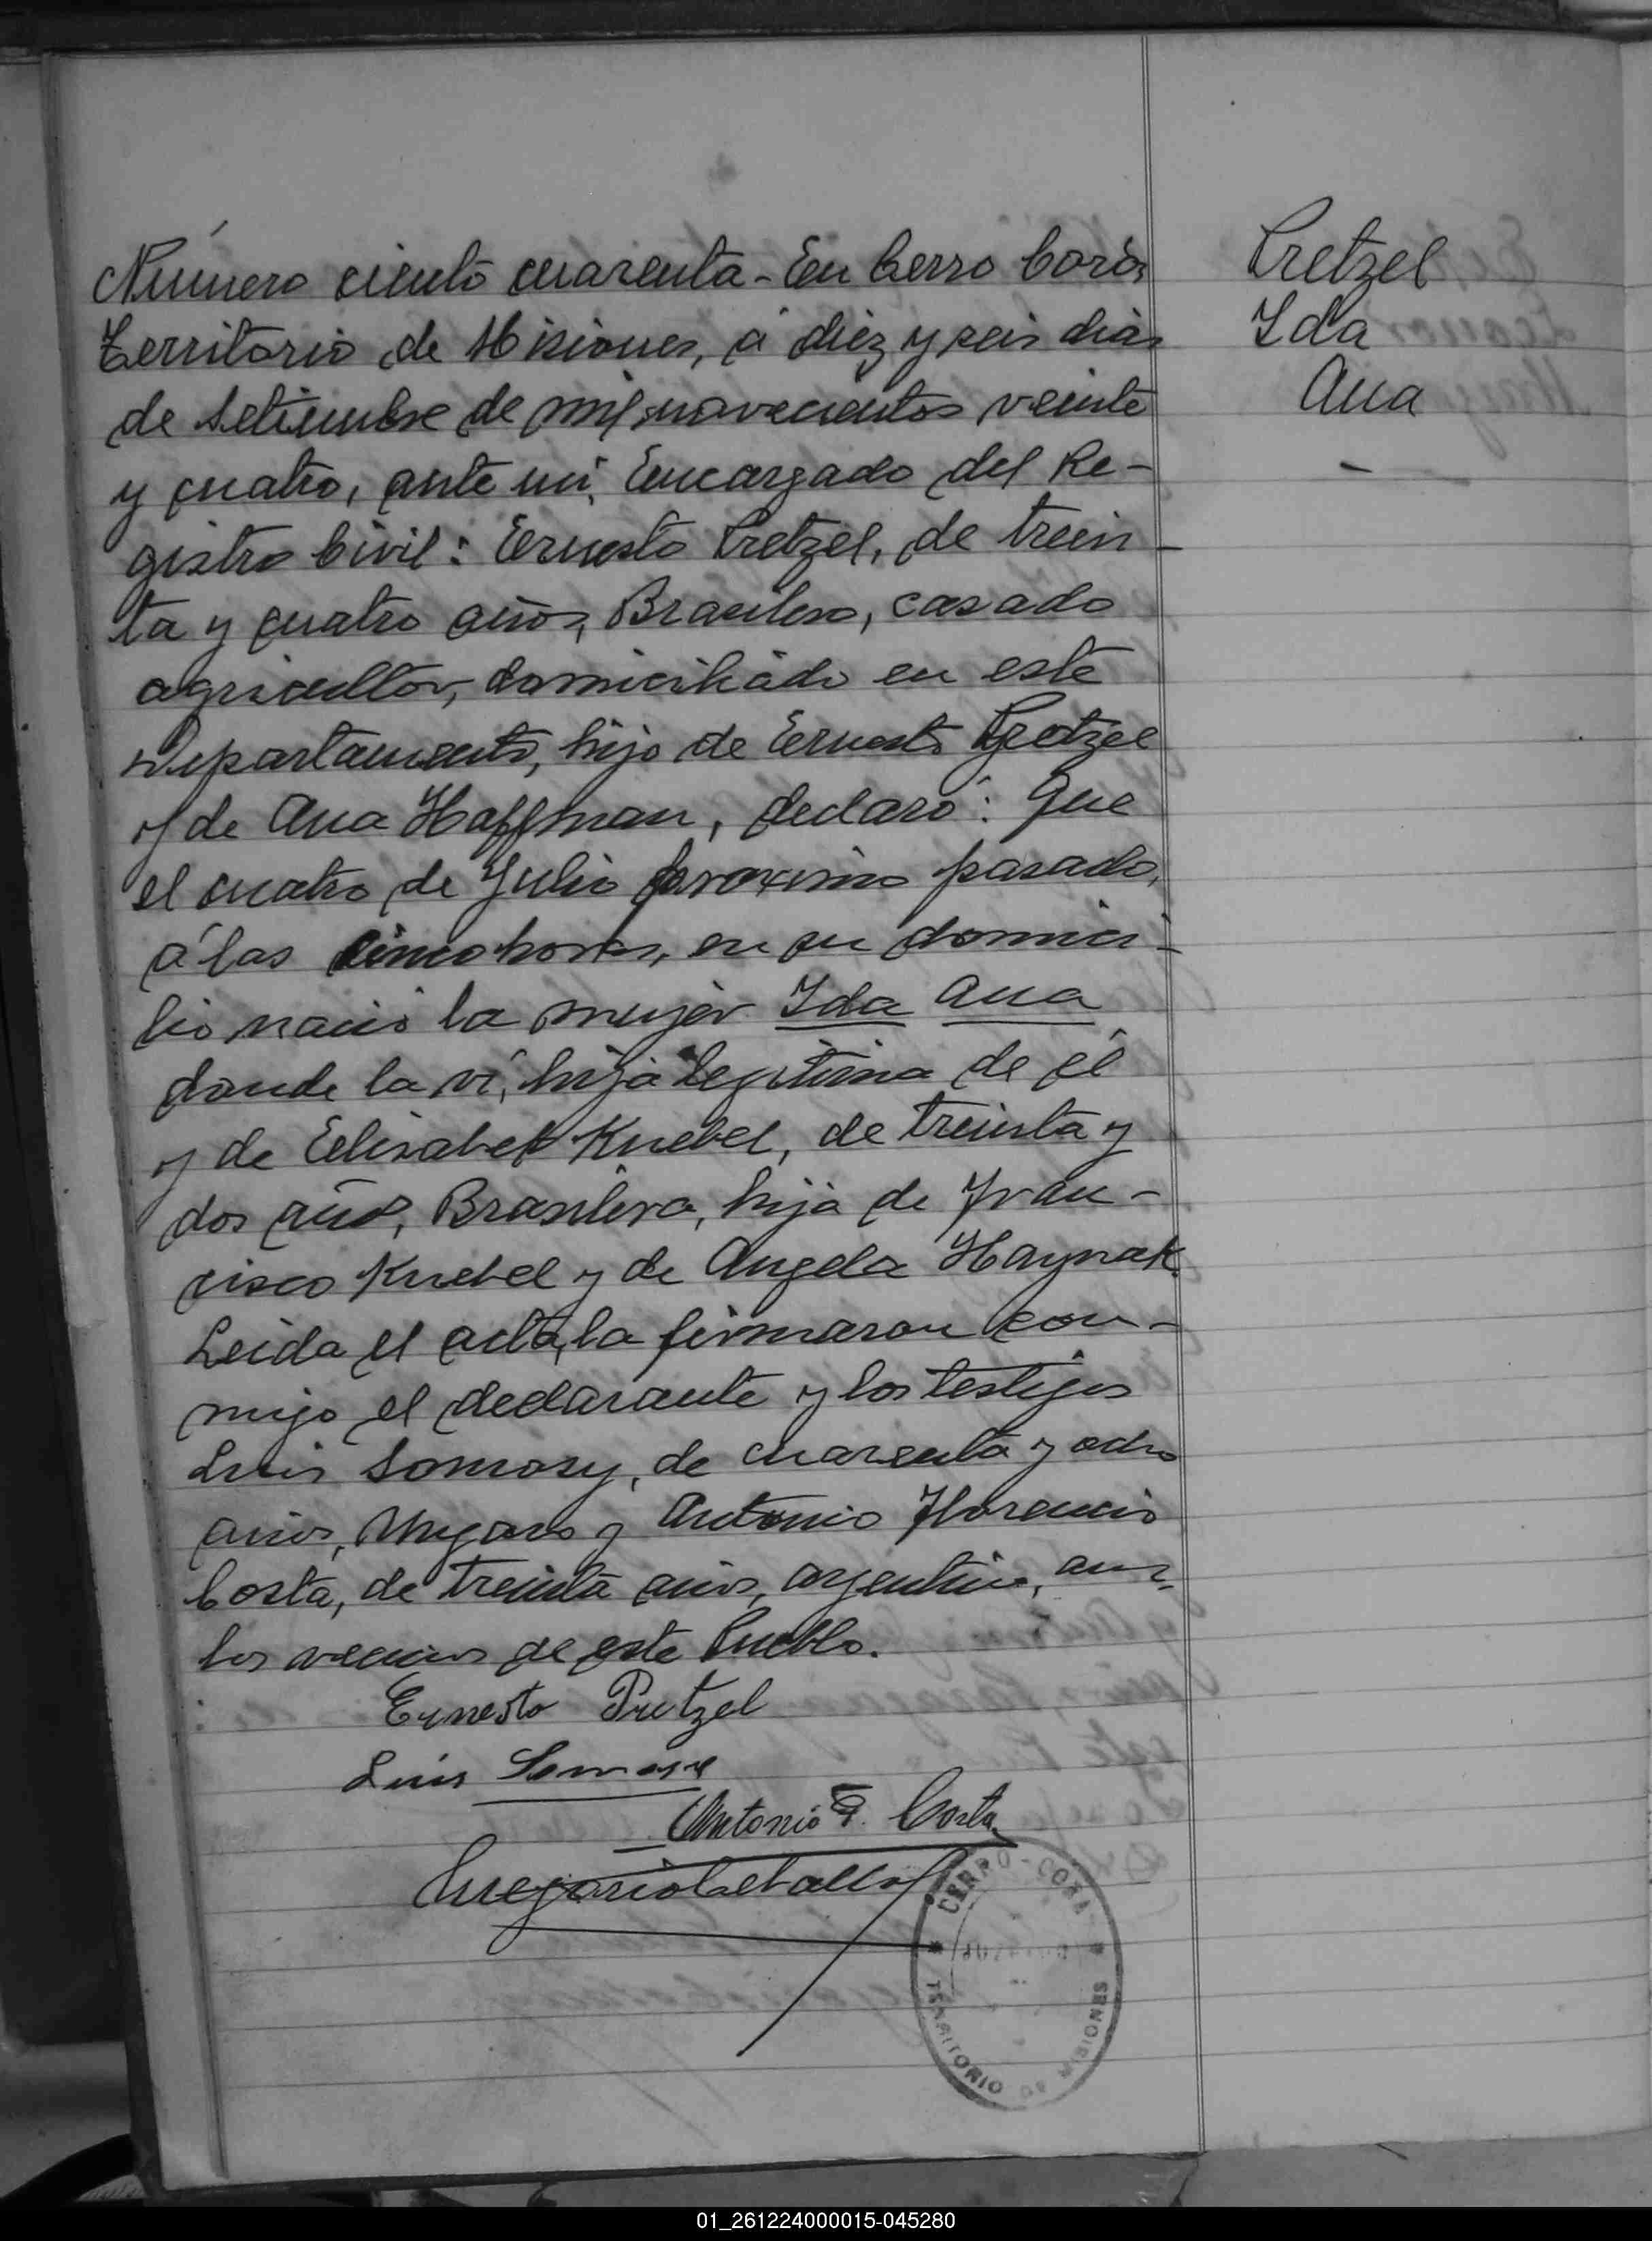 Número ciento cuarenta - En Cerro Corá,
Territorio de Misiones, á diez y seis dias
de Setiembre de mil novecientos veinte
y cuatro, ante mi, Encargado del Re-
gistro Civil: Ernesto Pretzel, de trein-
ta y cuatro años, Brasilero, casado
agricultor, domiciliado en este
Departamento, hijo de Ernesto Pretzel
y de Ana Hoffman, declaró: Que
el cuatro de Julio proximo pasado,
á las cinco horas, en su domici-
lio nació la mujer Ida Ana
donde la ví, hija legitima de él
y de Elisabet Knebel, de treinta y
dos años, Brasilera, hija de Fran-
cisco Knebel y de Angela Haynak.
Leida el acta, la firmaron con-
migo el declarante y los testigos
Luis Somosy, de cuarenta y ocho
años, Ungaro y Antonio Florencio
Costa, de treinta años, argentino, am-
bos vecinos de este Pueblo.
Ernesto Pretzel
Luis Somosy
Antonio F. Costa
Gregorio Ceballos
CERRO-CORA
TERRITORIO DE MISIONES
Pretzel
Ida
Ana
01_261224000015-045280